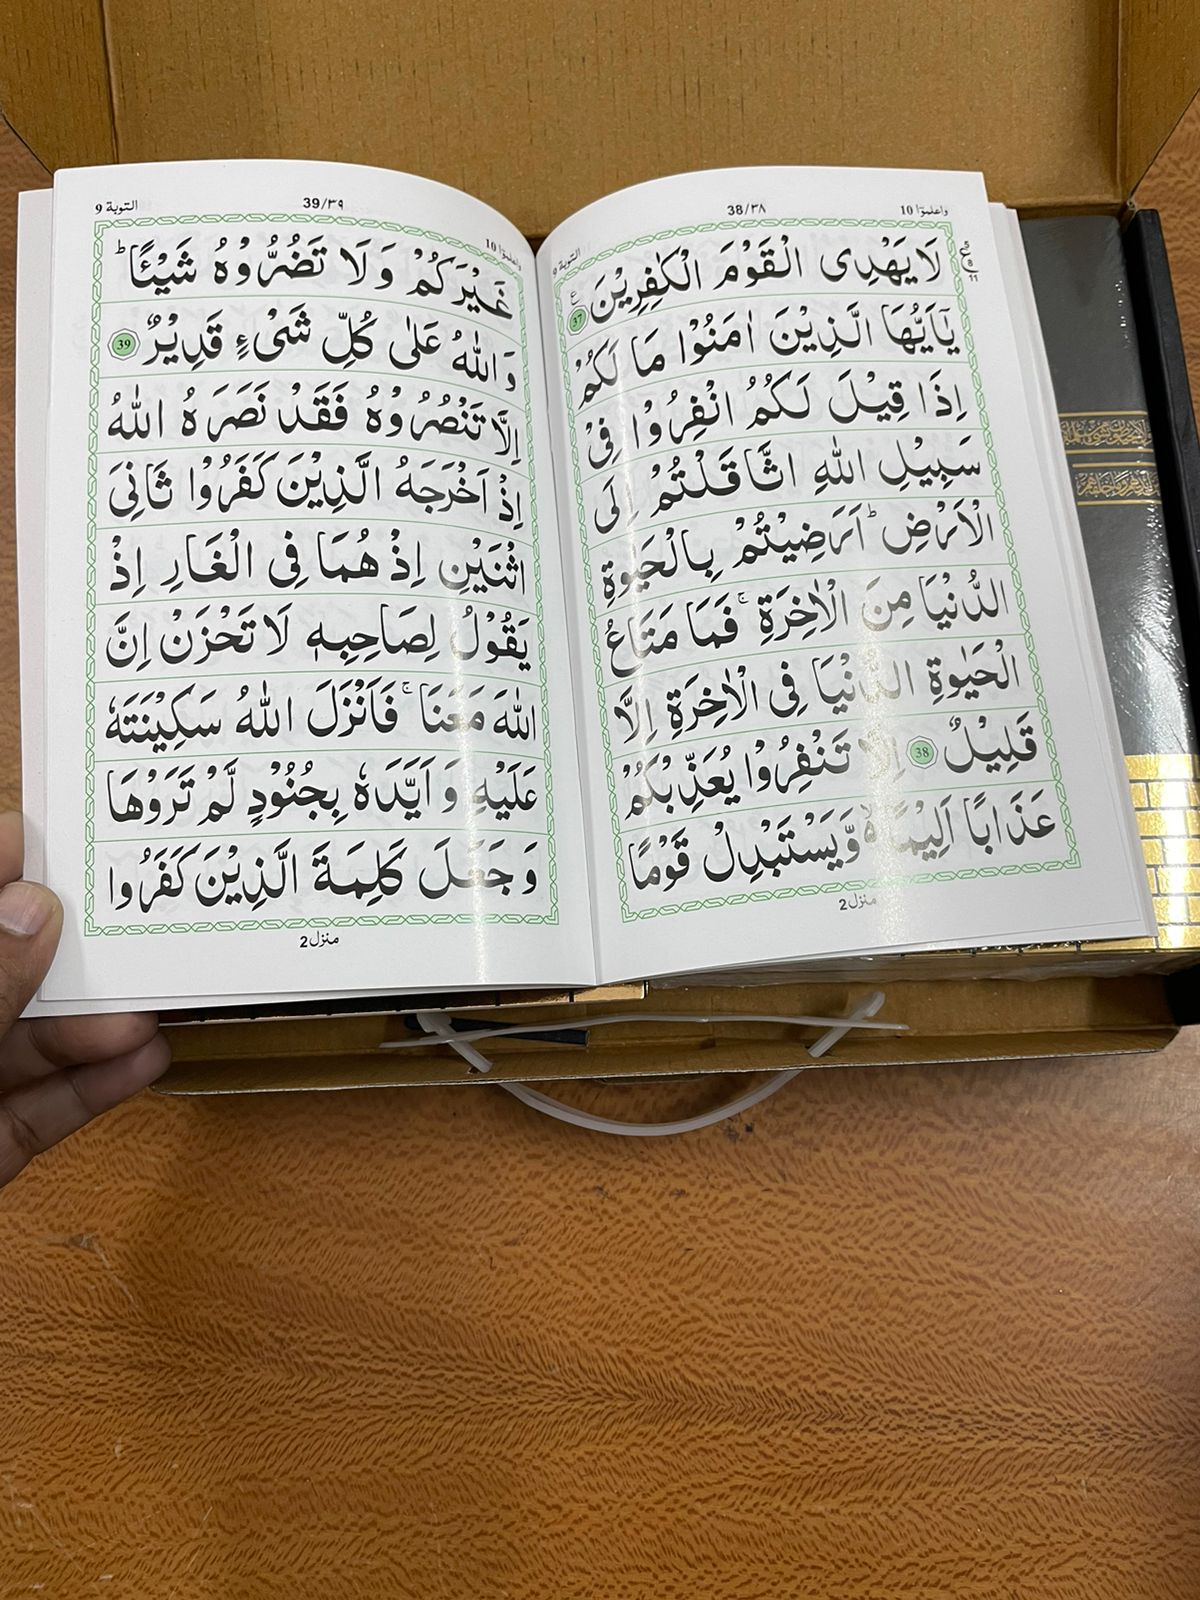 واعلموٓا 10
38/٣٨
التوبة 9
لَا يَهْدِى الْقَوْمَ الْكٰفِرِيْنَ 37 ع
يٰۤاَيُّهَا الَّذِيْنَ اٰمَنُوْا مَا لَكُمْ
اِذَا قِيْلَ لَكُمُ انْفِرُوْا فِىْ
سَبِيْلِ اللّٰهِ اثَّاقَلْتُمْ اِلَى
الْاَرْضِ ؕ اَرَضِيْتُمْ بِالْحَيٰوةِ
الدُّنْيَا مِنَ الْاٰخِرَةِ ۚ فَمَا مَتَاعُ
الْحَيٰوةِ الدُّنْيَا فِى الْاٰخِرَةِ اِلَّا
قَلِيْلٌ 38 اِلَّا تَنْفِرُوْا يُعَذِّبْكُمْ
عَذَابًا اَلِيْمًا ۙ وَّيَسْتَبْدِلْ قَوْمًا
منزل 2
واعلموٓا 10
39/٣٩
التوبة 9
غَيْرَكُمْ وَلَا تَضُرُّوْهُ شَيْئًا ؕ
وَاللّٰهُ عَلٰى كُلِّ شَىْءٍ قَدِيْرٌ 39
اِلَّا تَنْصُرُوْهُ فَقَدْ نَصَرَهُ اللّٰهُ
اِذْ اَخْرَجَهُ الَّذِيْنَ كَفَرُوْا ثَانِىَ
اثْنَيْنِ اِذْ هُمَا فِى الْغَارِ اِذْ
يَقُوْلُ لِصَاحِبِهٖ لَا تَحْزَنْ اِنَّ
اللّٰهَ مَعَنَا ۚ فَاَنْزَلَ اللّٰهُ سَكِيْنَتَهٗ
عَلَيْهِ وَ اَيَّدَهٗ بِجُنُوْدٍ لَّمْ تَرَوْهَا
وَ جَعَلَ كَلِمَةَ الَّذِيْنَ كَفَرُوا
منزل 2